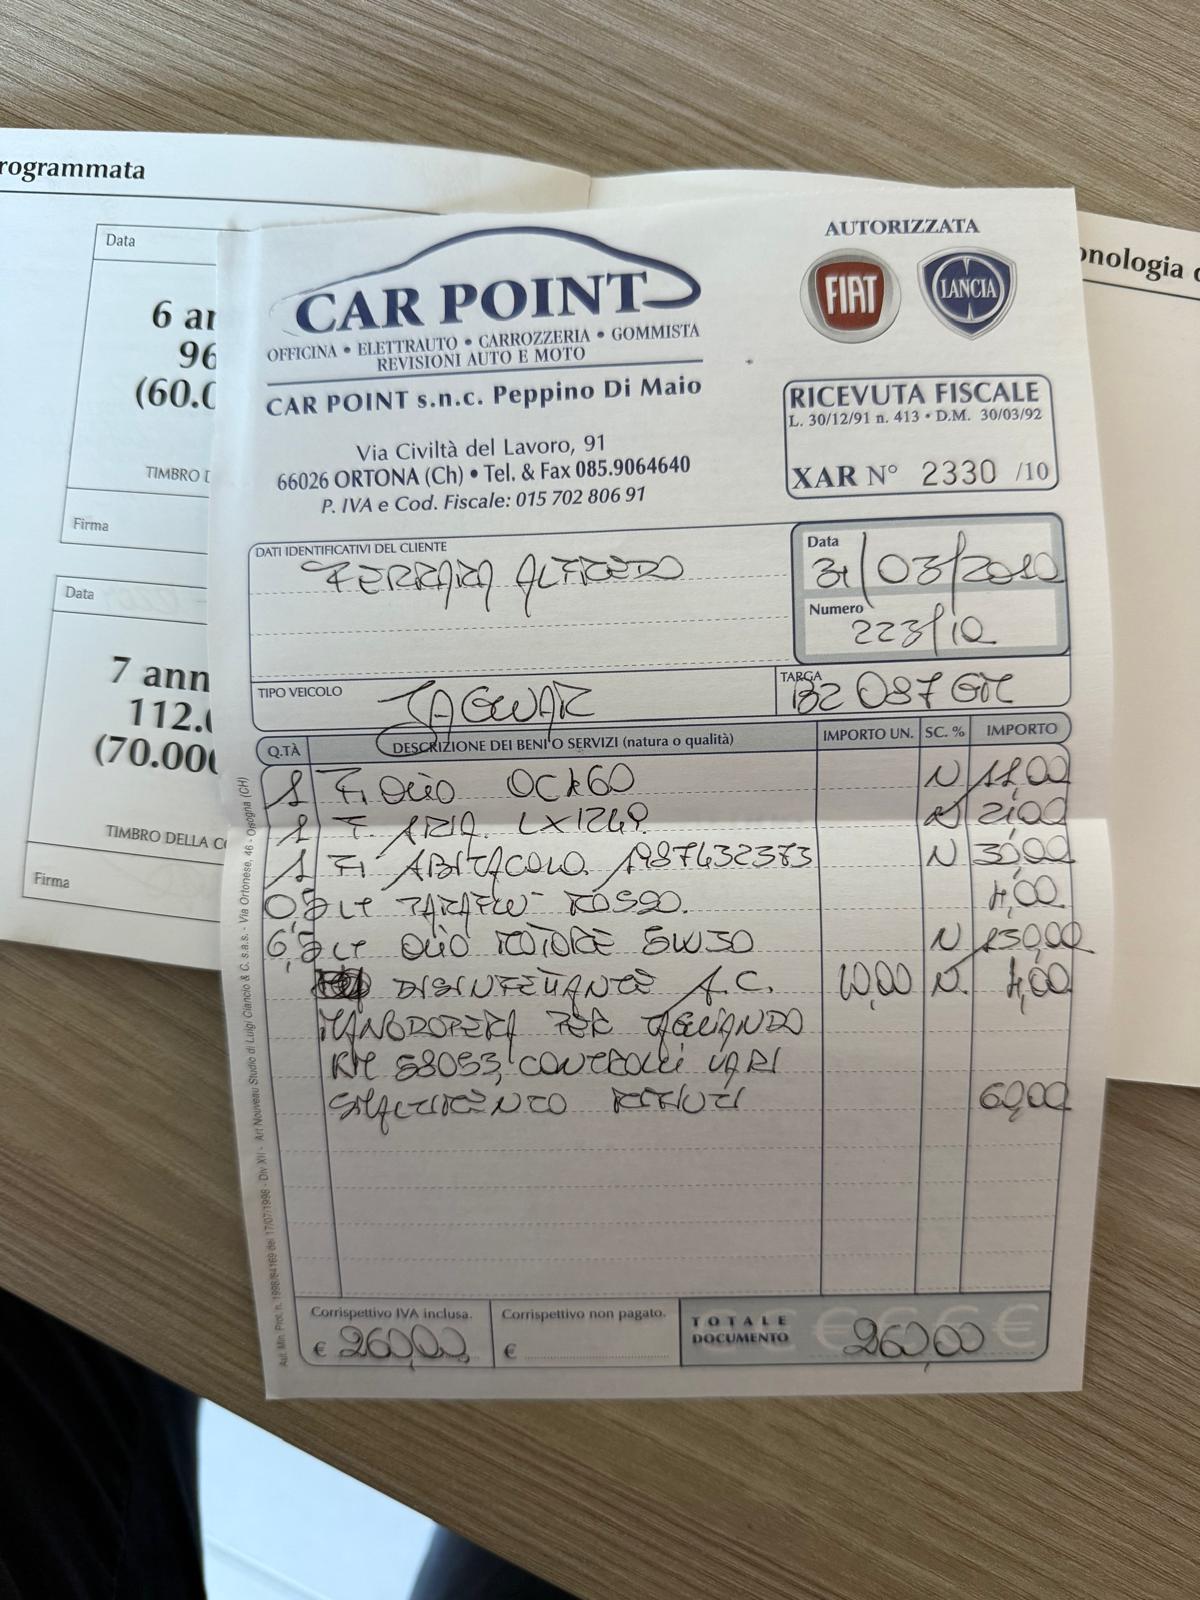 rogrammata
Data
6 an
96
(60.0
TIMBRO D
Firma
Data
7 ann
112.0
(70.000
TIMBRO DELLA CO
Firma
onologia d
CAR POINT
OFFICINA • ELETTRAUTO • CARROZZERIA • GOMMISTA
REVISIONI AUTO E MOTO
CAR POINT s.n.c. Peppino Di Maio
Via Civiltà del Lavoro, 91
66026 ORTONA (Ch) • Tel. & Fax 085.9064640
P. IVA e Cod. Fiscale: 015 702 806 91
AUTORIZZATA
FIAT LANCIA
RICEVUTA FISCALE
L. 30/12/91 n. 413 • D.M. 30/03/92
XAR N° 2330 /10
DATI IDENTIFICATIVI DEL CLIENTE
FERRARA ALFREDO
Data
31/03/2010
Numero
223/10
TIPO VEICOLO JAGUAR
TARGA BZ 087 GM
Q.TÀ DESCRIZIONE DEI BENI O SERVIZI (natura o qualità) IMPORTO UN. SC. % IMPORTO
1 F. OLIO OCK60 N 11,00
1 F. ARIA LX1249 N 21,00
1 F. ABITACOLO 1987432373 N 30,00
0,5 LT PARAFLU ROSSO. 4,00
6,5 LT OLIO MOTORE 5W30 N 130,00
DISINFETTANTE A.C. 10,00 N. 4,00
MANODOPERA PER TAGLIANDO
KM 58053, CONTROLLI VARI
SMALTIMENTO RIFIUTI 60,00
Corrispettivo IVA inclusa.
€ 260,00
Corrispettivo non pagato.
€
TOTALE
DOCUMENTO 260,00
Aut. Min. Prot. n. 1998/84169 del 17/07/1998 - Div XII - Art Nouveau Studio di Luigi Ciancio & C. s.a.s. - Via Ortonese, 46 - Osogna (CH)